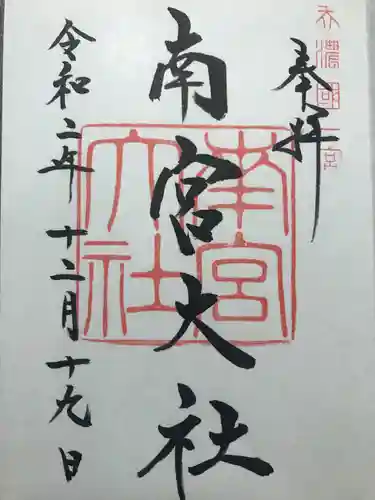 美濃國一宮
奉拝
南宮大社
南宮大社
令和二年 十二月 十九日